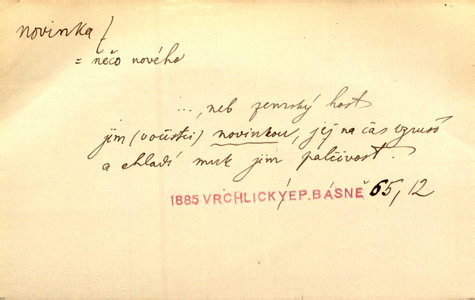 novinka f
= něco nového
..., neb zemský host
jim (            ) novinkou, jej na čas vzruší
a chladí muk jim palčivost.
1885 VRCHLICKÝ EP. BÁSNĚ 65, 12